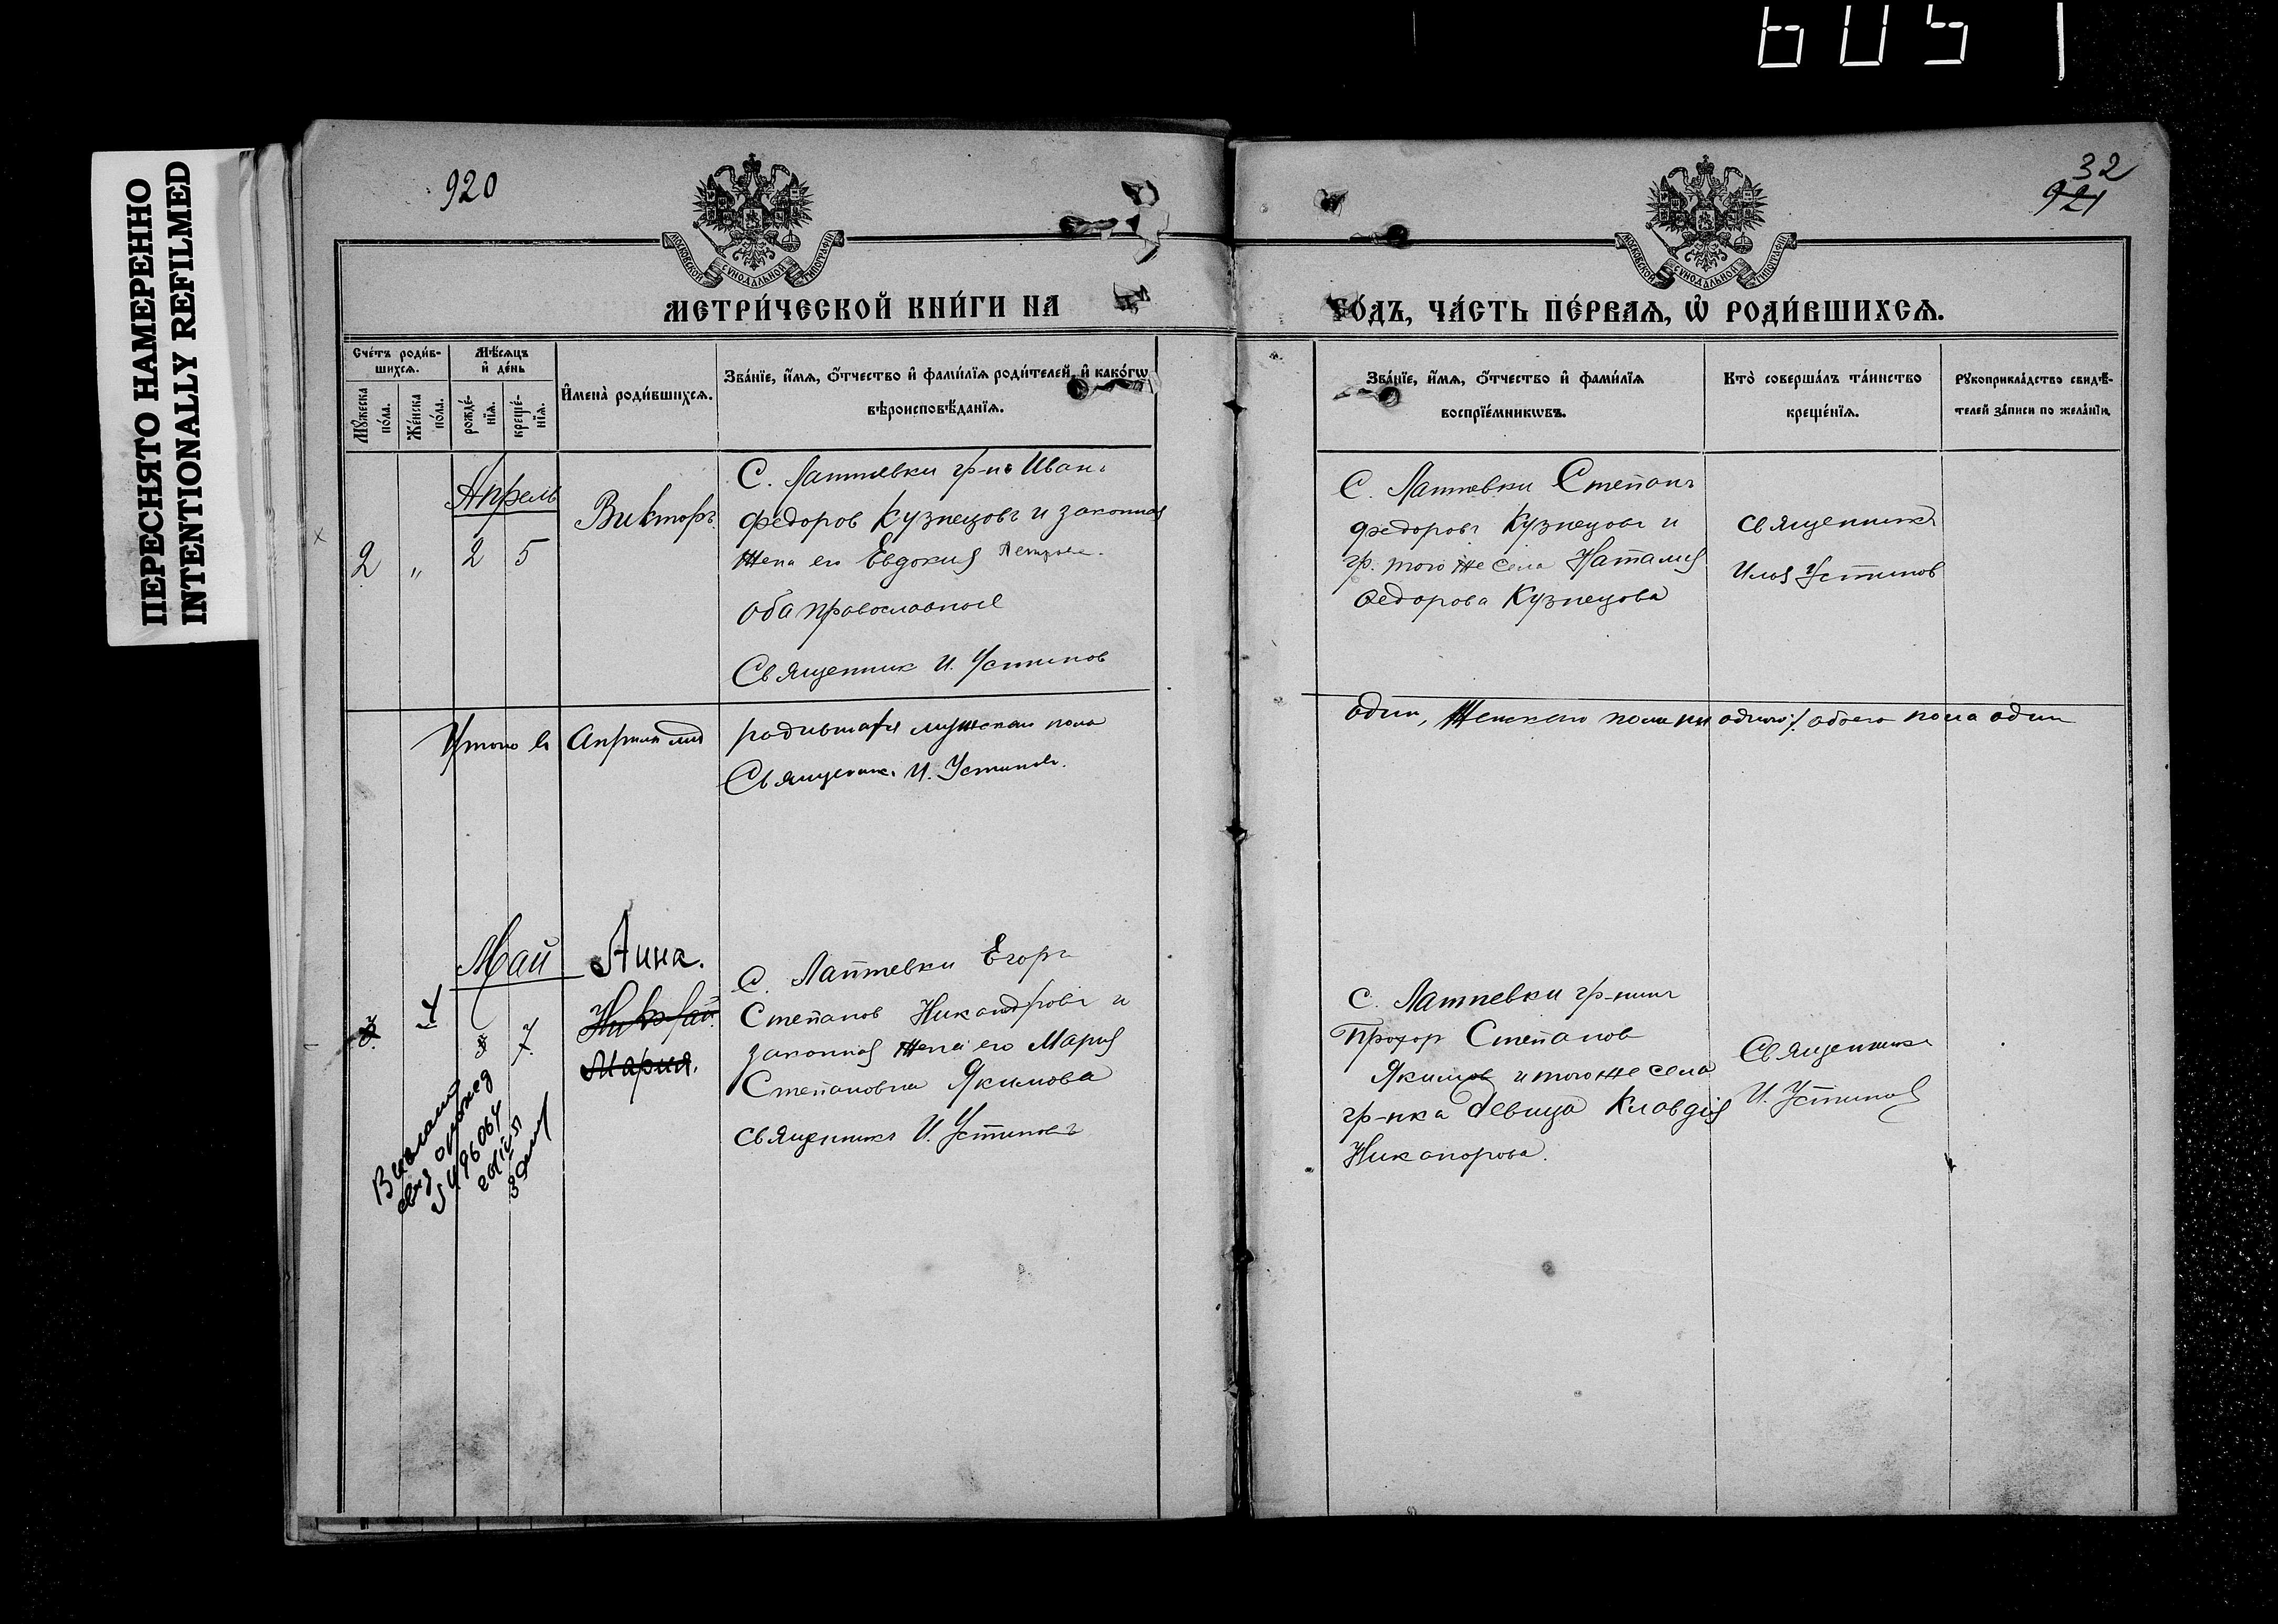 605
ПЕРЕСНЯТО НАМЕРЕННО
INTENTIONALLY REFILMED
920
МОСКОВСКОЙ СѴНОДАЛЬНОЙ ТИПОГРАФІИ
МЕТРИ́ЧЕСКОЙ КНИ́ГИ НА
Сче́тъ роди́в-
шихсѧ.
Мѣ́сѧцъ
и҆ де́нь
Мꙋ́жеска
по́ла.
Же́нска
по́ла.
рожде́-
нїѧ.
креще́-
нїѧ.
И҆мена̀ роди́вшихсѧ.
Зва́нїе, и҆́мѧ, ѻ҆́тчество и҆ фами́лїѧ роди́телей, и҆ како́гѡ
вѣроисповѣ́данїѧ.
Апрель
2 „ 2 5
Викторъ.
С. Лаптевки гр-нъ Иванъ
Федоров Кузнецовъ и законная
жена его Евдокия Петрова.
оба православные
Священник И. Устинов
Итого въ Апреле м-це родившагося мужскаго пола
Священникъ И. Устиновъ.
Май
4
7.
Анна.
Николай.
Мария.
С. Лаптевки Егоръ
Степанов Никандровъ и
законная жена его Мария
Степановна Якимова
Священникъ И. Устиновъ
549606
32
921
МОСКОВСКОЙ СѴНОДАЛЬНОЙ ТИПОГРАФІИ
ГО́ДЪ, ЧА́СТЬ ПЕ́РВАѦ, Ѡ҆ РОДИ́ВШИХСѦ.
Зва́нїе, и҆́мѧ, ѻ҆́тчество и҆ фами́лїѧ
воспрїе́мниковъ.
Кто̀ соверша́лъ та́инство
креще́нїѧ.
Рꙋкоприкла́дство свидѣ́-
телей за́писи по жела́нїю.
С. Лаптевки Степанъ
Федоровъ Кузнецовъ и
гр. того же села Наталия
Федорова Кузнецова
Священникъ
Илья Устинов
один, Женскаго пола ни одного, обоего пола один
С. Лаптевки гр-нинъ
Прохор Степанов
Якимов и того же села
гр-нка девица Клавдия
Никанорова.
Священникъ
И. Устинов